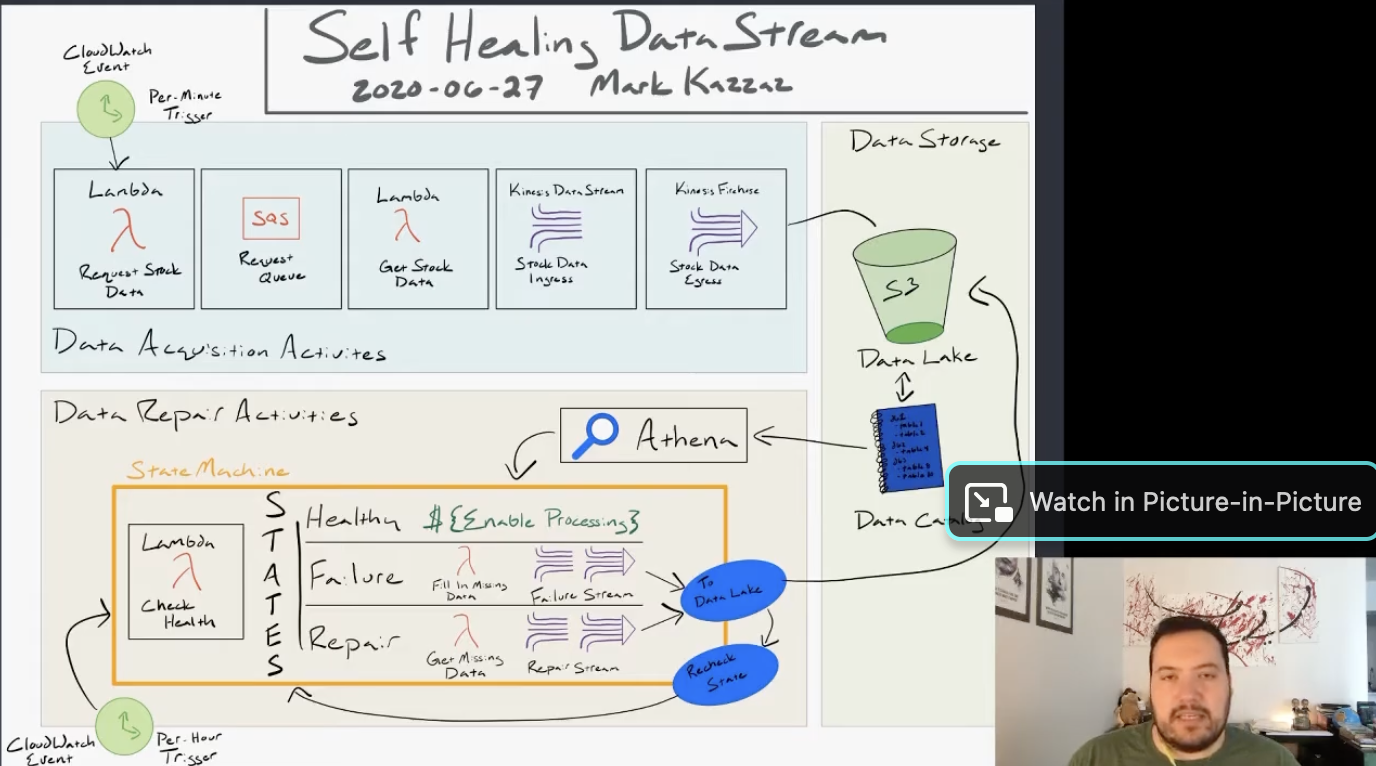 Self Healing Data Stream
2020-06-27 Mark Kazzaz
CloudWatch
Event
Per-Minute
Trigger
Lambda
λ
Request Stock
Data
SQS
Request
Queue
Lambda
λ
Get Stock
Data
Kinesis Data Stream
Stock Data
Ingress
Kinesis Firehose
Stock Data
Egress
Data Acquisition Activites
Data Storage
S3
Data Lake
Data Catalog
Data Repair Activities
Athena
State Machine
Lambda
λ
Check
Health
STATES
Healthy ${Enable Processing}
Failure
λ
Fill In Missing
Data
Failure Stream
Repair
λ
Get Missing
Data
Repair Stream
To
Data Lake
Recheck
State
CloudWatch
Event
Per-Hour
Trigger
Watch in Picture-in-Picture